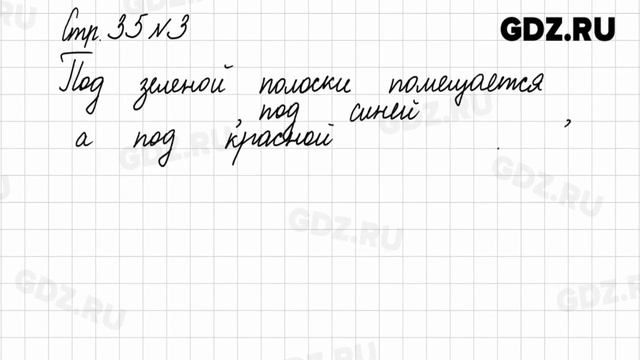 GDZ.RU
Стр. 35 N 3
Под зеленой полоски помещается
, под синей ,
а под красной .
GDZ.RU
GDZ.RU
GDZ.RU
GDZ.RU
GDZ.RU
GDZ.RU